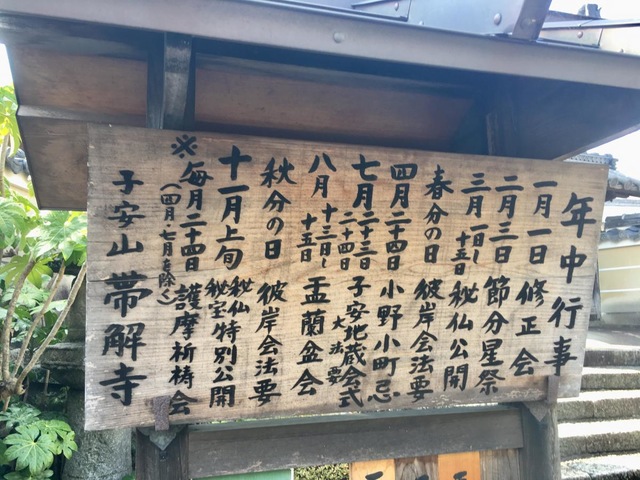 年中行事
一月一日 修正会
二月三日 節分星祭
三月一日~十五日 秘仏公開
春分の日 彼岸会法要
四月二十四日 小野小町忌
七月二十三日~二十四日 子安地蔵会式大法要
八月十三日~十五日 盂蘭盆会
秋分の日 彼岸会法要
十一月上旬 秘仏秘宝特別公開
※毎月二十四日 護摩祈祷会
(四月・七月を除く)
子安山 帯解寺